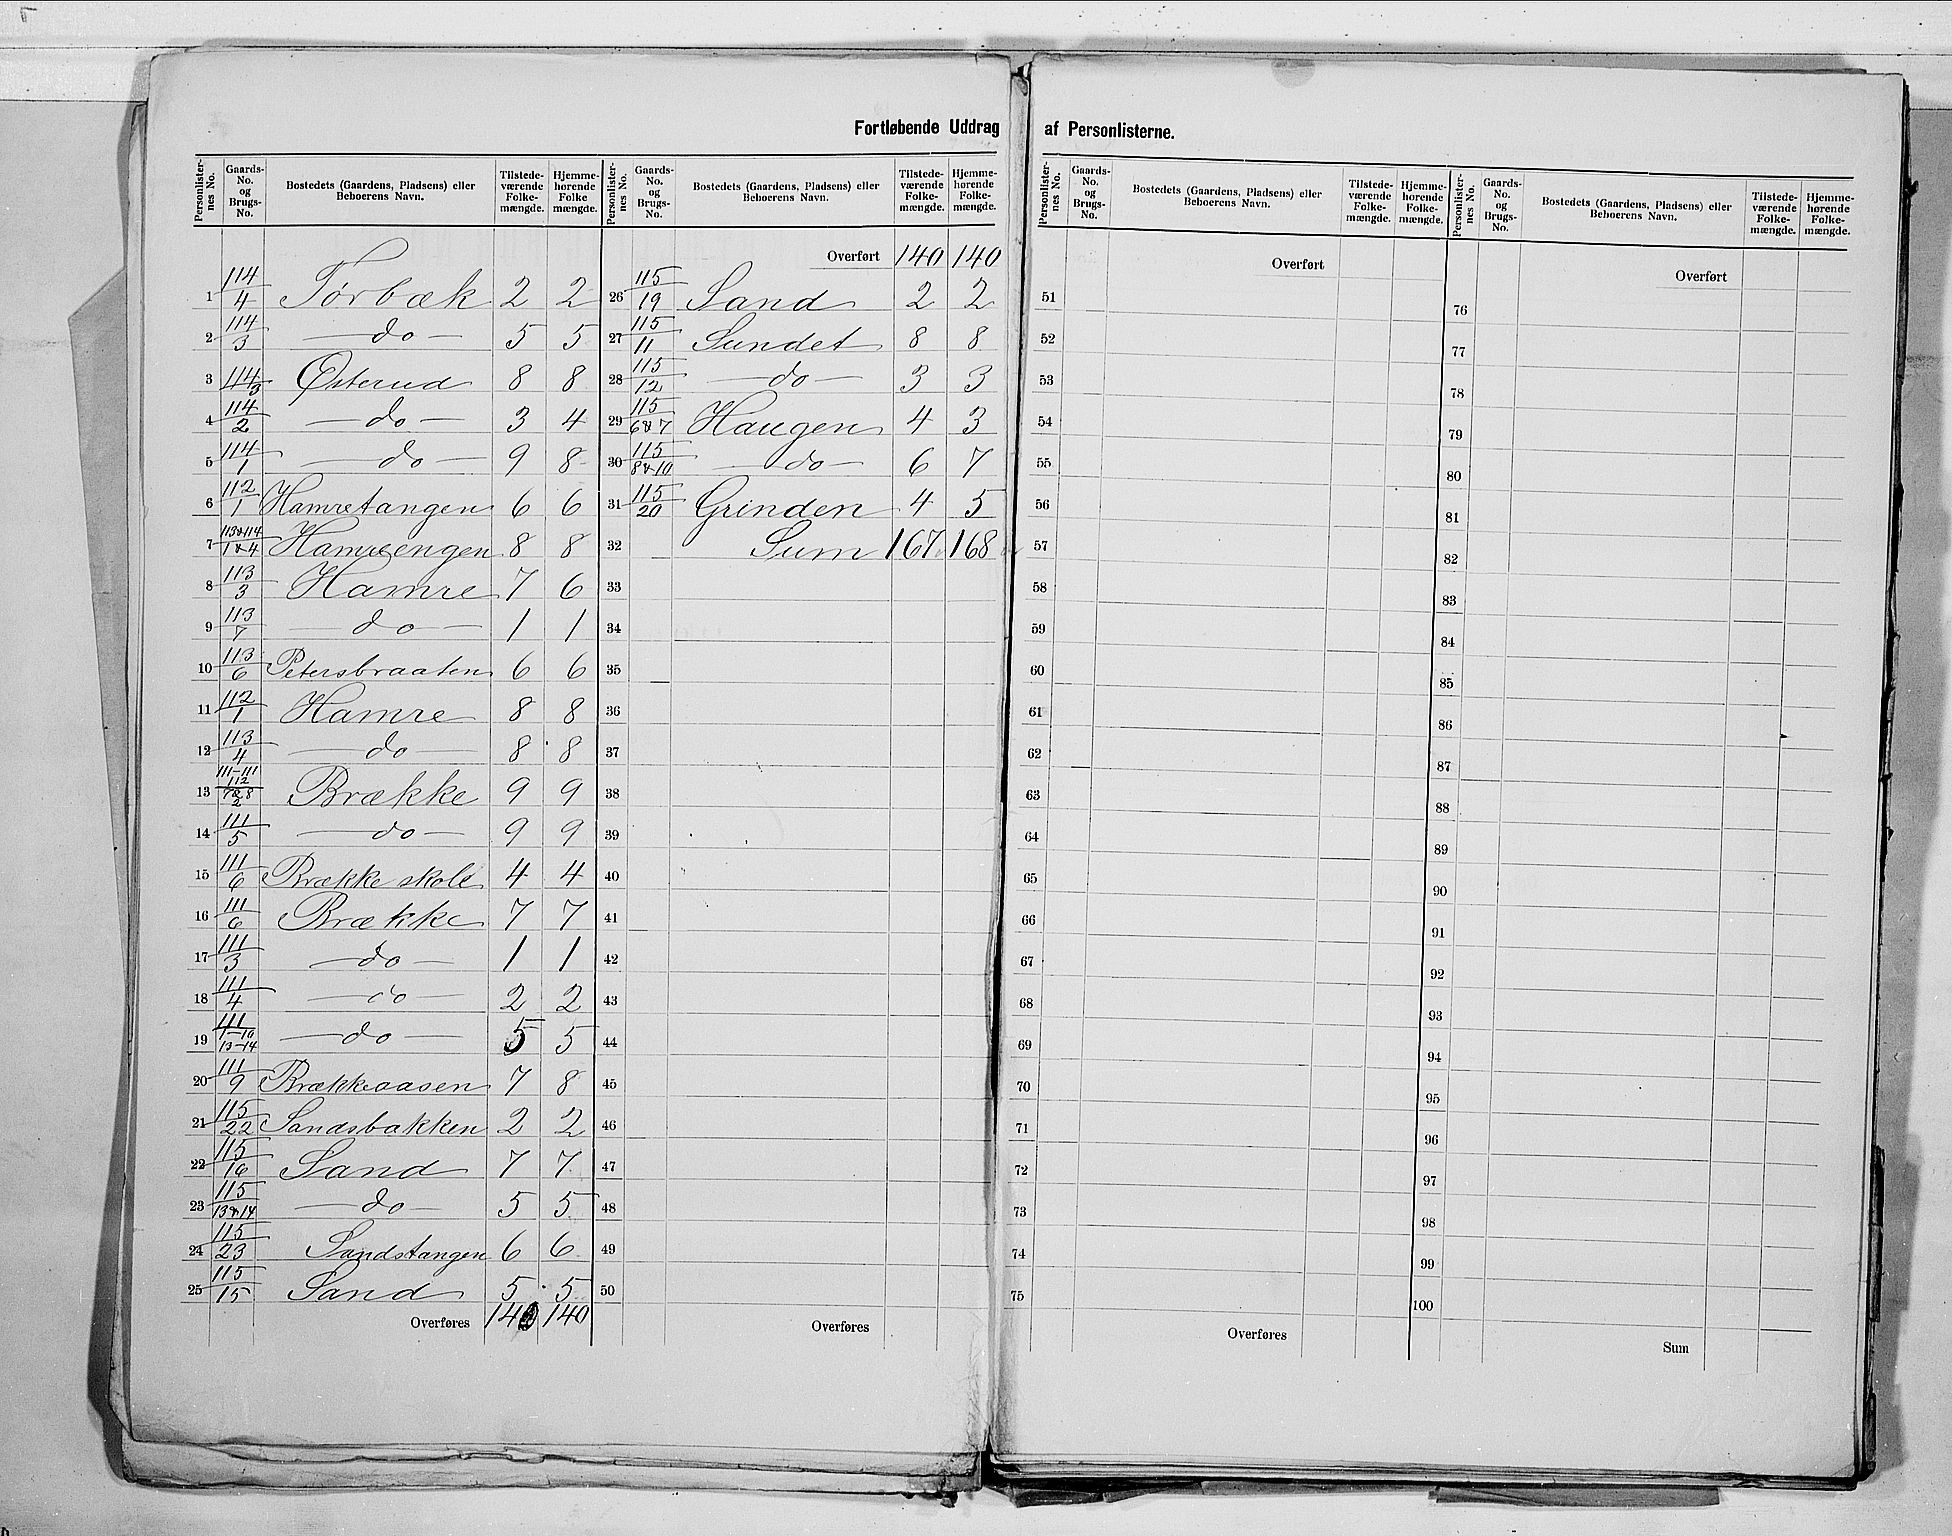 Fortløbende Uddrag af Personlisterne.
Personlister-nes No. | Gaards-No. og Brugs-No. | Bostedets (Gaardens, Pladsens) eller Beboerens Navn. | Tilstede-værende Folke-mængde. | Hjemme-hørende Folke mængde.
1 114/4 Tørbæk 2 2
2 114/3 — do — 5 5
3 114/3 Østerud 8 8
4 114/2 — do — 3 4
5 114/1 — do — 9 8
6 112/1 Hamretangen 6 6
7 113&114/1&4 Hamreengen 8 8
8 113/3 Hamre 7 6
9 113/7 — do — 1 1
10 113/6 Petersbraaten 6 6
11 112/1 Hamre 8 8
12 113/4 — do — 8 8
13 111-111 112/7&8 2 Brække 9 9
14 111/5 — do — 9 9
15 111/6 Brække skole 4 4
16 111/6 Brække 7 7
17 111/3 — do — 1 1
18 111/4 — do — 2 2
19 111/1-10 13-14 — do — 5 5
20 111/9 Brækkeaasen 7 8
21 115/22 Sandsbakken 2 2
22 115/16 Sand 7 7
23 115/13&14 — do — 5 5
24 115/23 Sandstangen 6 6
25 115/15 Sand 5 5
Overføres 140 140
Personlister-nes No. | Gaards-No. og Brugs-No. | Bostedets (Gaardens, Pladsens) eller Beboerens Navn. | Tilstede-værende Folke-mængde. | Hjemme-hørende Folke-mængde.
Overført 140 140
26 115/19 Sand 2 2
27 115/11 Sundet 8 8
28 115/12 — do — 3 3
29 115/6&7 Haugen 4 3
30 115/8&10 — do — 6 7
31 115/20 Grinden 4 5
32 Sum 167 168
33
34
35
36
37
38
39
40
41
42
43
44
45
46
47
48
49
50
Overføres
Personlister-nes No. | Gaards-No. og Brugs-No. | Bostedets (Gaardens, Pladsens) eller Beboerens Navn. | Tilstede-værende Folke-mængde. | Hjemme-hørende Folke-mængde.
Overført
51
52
53
54
55
56
57
58
59
60
61
62
63
64
65
66
67
68
69
70
71
72
73
74
75
Overføres
Personlister-nes No. | Gaards-No. og Brugs-No. | Bostedets (Gaardens, Pladsens) eller Beboerens Navn. | Tilstede-værende Folke-mængde. | Hjemme-hørende Folke-mængde.
Overført
76
77
78
79
80
81
82
83
84
85
86
87
88
89
90
91
92
93
94
95
96
97
98
99
100
Sum